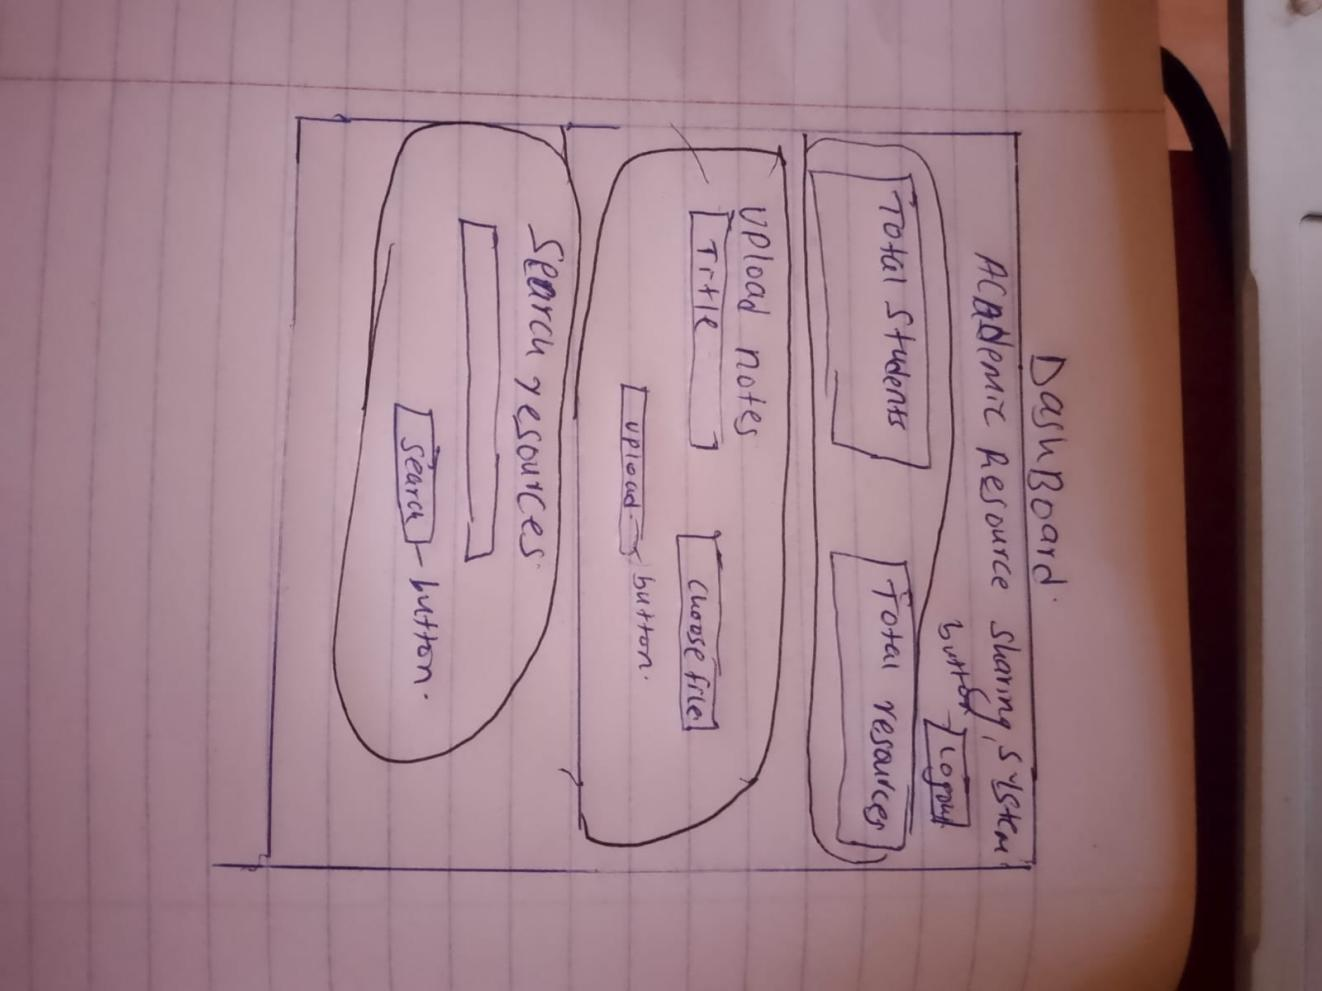 DashBoard.
ACADemic Resource sharing, system
button
Logout
Total Students
Total resources
UPload notes
Title
choose file
upload
button.
Search resources.
Search
button.